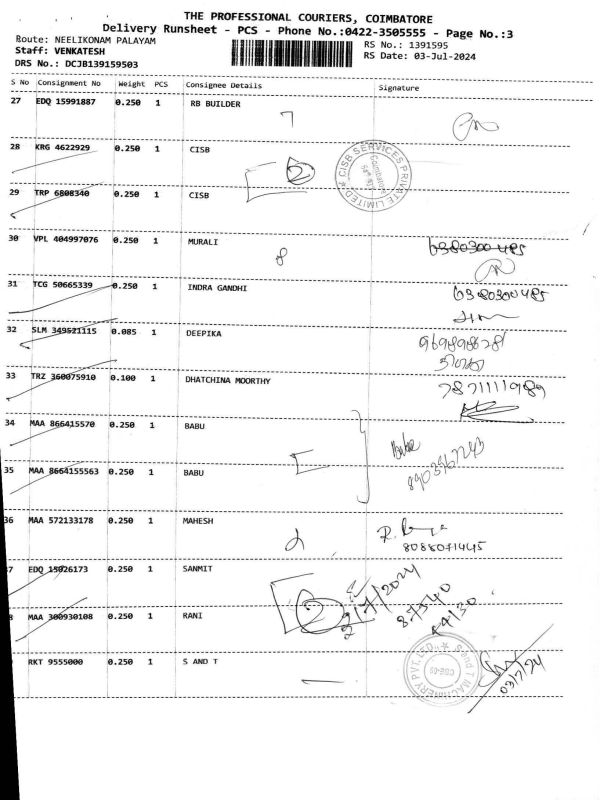 THE PROFESSIONAL COURIERS, COIMBATORE
Delivery Runsheet - PCS - Phone No.:0422-3505555 - Page No.:3
Route: NEELIKONAM PALAYAM
RS No.: 1391595
Staff: VENKATESH
RS Date: 03-Jul-2024
DRS No.: DCJB139159503
S No Consignment No Weight PCS Consignee Details Signature
27 EDQ 15991887 0.250 1 RB BUILDER
28 KRG 4622929 0.250 1 CISB
2
CISB SERVICES PRIVATE LIMITED
Coimbatore
29 TRP 6808340 0.250 1 CISB
30 VPL 404997076 0.250 1 MURALI
6380300485
31 TCG 50665339 0.250 1 INDRA GANDHI
6380300485
32 SLM 349521115 0.085 1 DEEPIKA
33 TRZ 360075910 0.100 1 DHATCHINA MOORTHY
7871111989
34 MAA 866415570 0.250 1 BABU
Babu
8903967243
35 MAA 8664155563 0.250 1 BABU
36 MAA 572133178 0.250 1 MAHESH
8088071445
7 EDQ 15026173 0.250 1 SANMIT
2/7/2024
87540
44130
8 MAA 300930108 0.250 1 RANI
2
RKT 9555000 0.250 1 S AND T
S and T MACHINERY PVT. LTD.
03/7/24